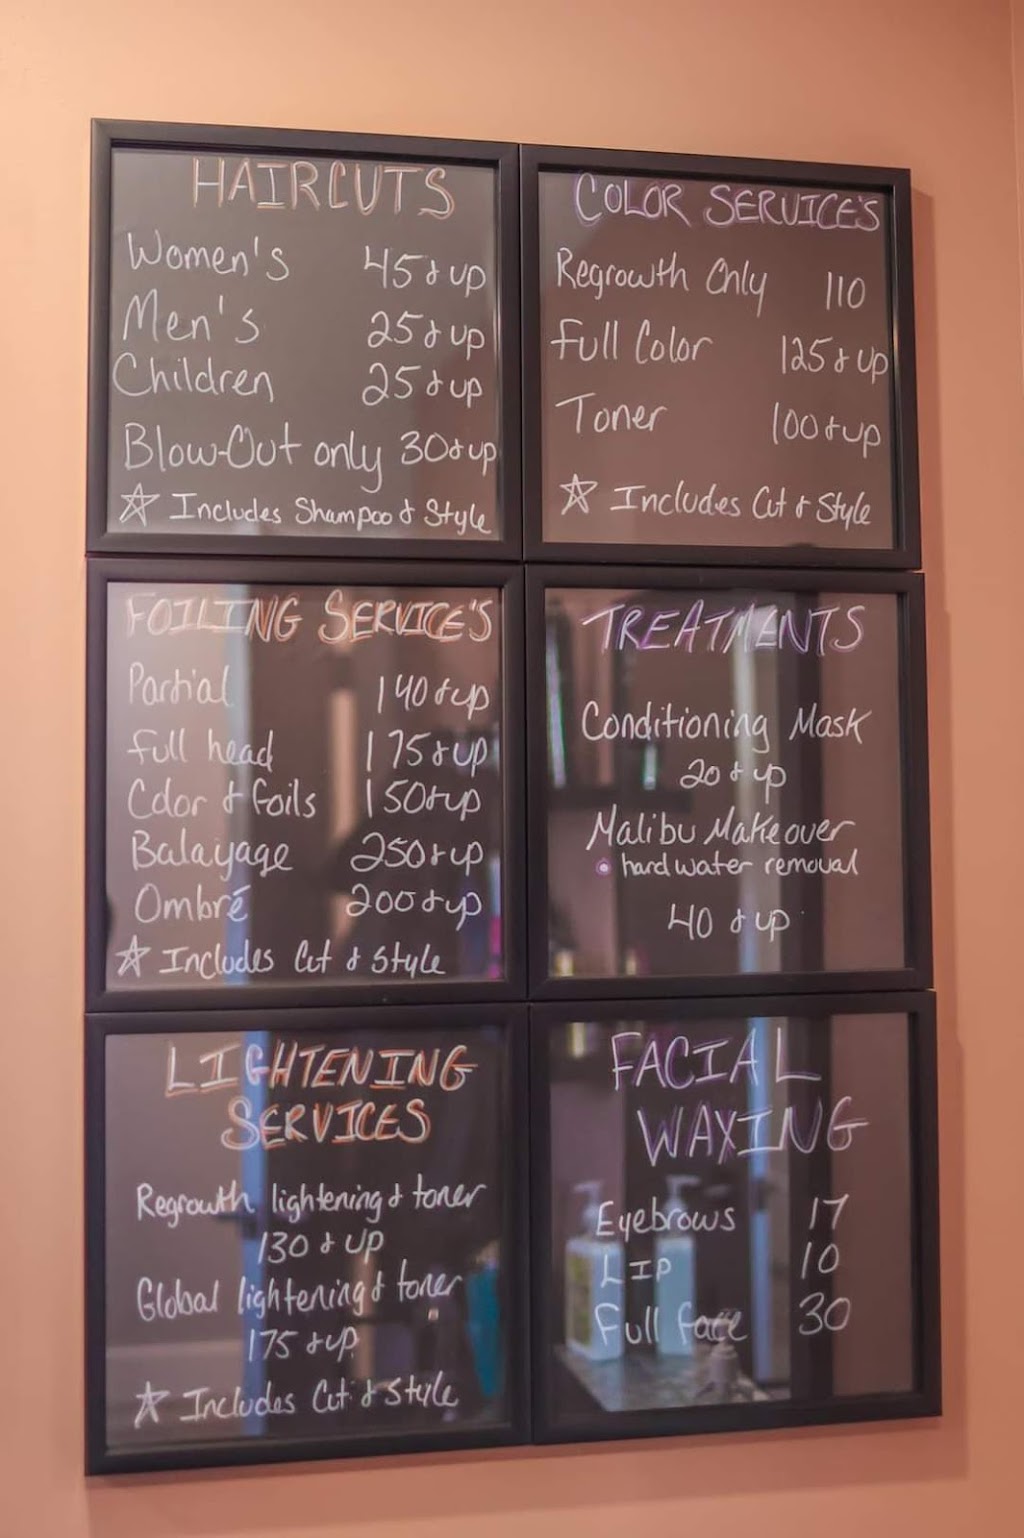 HAIRCUTS
Women's 45 & up
Men's 25 & up
Children 25 & up
Blow-Out only 30 & up
☆ Includes Shampoo & Style
COLOR SERVICE'S
Regrowth Only 110
Full Color 125 & up
Toner 100 & up
☆ Includes Cut & Style
FOILING SERVICE'S
Partial 140 & up
Full head 175 & up
Color & foils 150 & up
Balayage 250 & up
Ombré 200 & up
☆ Includes Cut & Style
TREATMENTS
Conditioning Mask
20 & up
Malibu Makeover
• hard water removal
40 & up
LIGHTENING
SERVICES
Regrowth lightening & toner
130 & up
Global lightening & toner
175 & up
☆ Includes Cut & Style
FACIAL
WAXING
Eyebrows 17
LIP 10
Full face 30